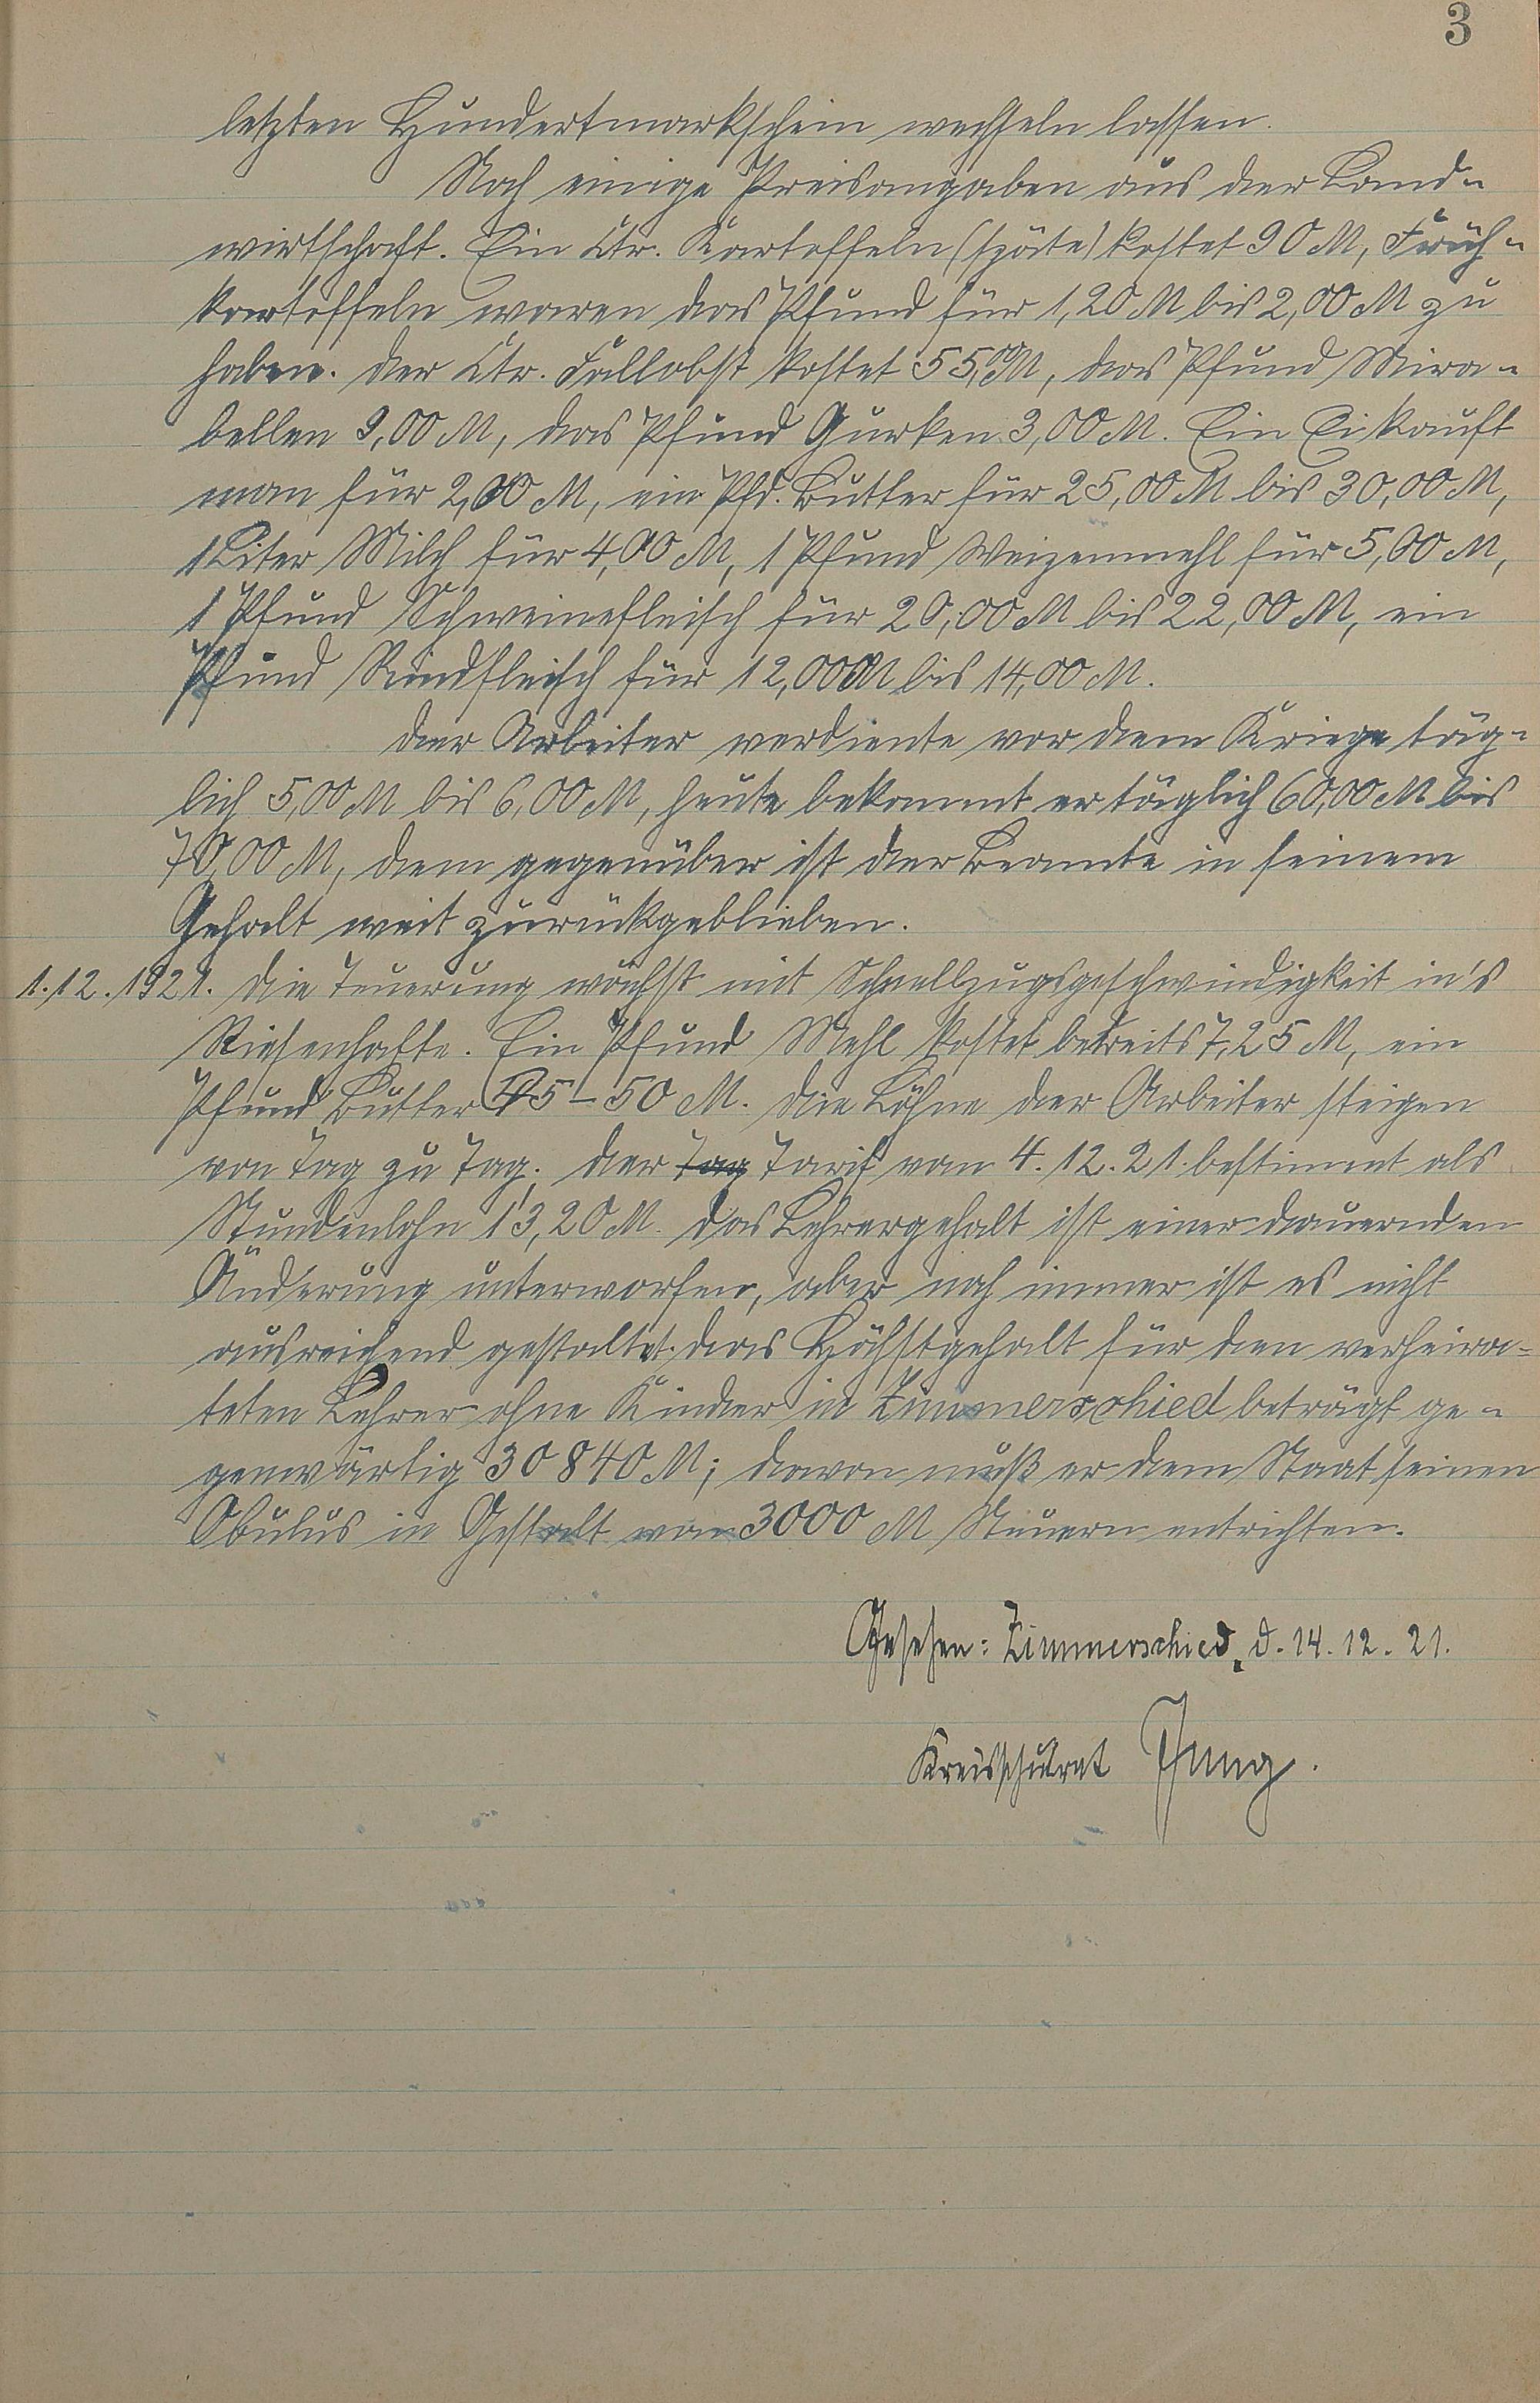 3
letzten Hundertmarkschein wechseln lassen.
Noch einige Preisangaben aus der Land-
wirtschaft. Ein Ctr. Kartoffeln (späte) kostet 90 M, Früh-
kartoffeln waren das Pfund für 1,20 M bis 2,00 M zu
haben. Der Ctr. Fallobst kostet 55,00 M, das Pfund Mira-
bellen 9,00 M, das Pfund Gurken 3,00 M. Ein Ei kauft
man für 2,00 M, ein Pfd. Butter für 25,00 M bis 30,00 M,
1 Liter Milch für 4,00 M, 1 Pfund Weizenmehl für 5,00 M,
1 Pfund Schweinefleisch für 20,00 M bis 22,00 M, ein
Pfund Rindfleisch für 12,00 M bis 14,00 M.
Der Arbeiter verdiente vor dem Kriege täg-
lich 5,00 M bis 6,00 M, heute bekommt er täglich 60,00 M bis
70,00 M, dem gegenüber ist der Beamte in seinem
Gehalt weit zurückgeblieben.
1.12.1921. Die Teuerung wächst mit Schnellzugsgeschwindigkeit in's
Riesenhafte. Ein Pfund Mehl kostet bereits 7,25 M, ein
Pfund Butter 45–50 M. Die Löhne der Arbeiter steigen
von Tag zu Tag. Der Tag Tarif vom 4.12.21. bestimmt als
Stundenlohn 13,20 M. Das Lehrergehalt ist einer dauernden
Änderung unterworfen, aber noch immer ist es nicht
ausreichend gestaltet. Das Höchstgehalt für den verheira-
teten Lehrer ohne Kinder in Zimmerschied beträgt ge-
genwärtig 30 840 M; davon muß er dem Staat seinen
Obulus in Gestalt von 3000 M Steuern entrichten.
Gesehen: Zimmerschied, d. 14.12.21.
Kreisschulrat Jung.